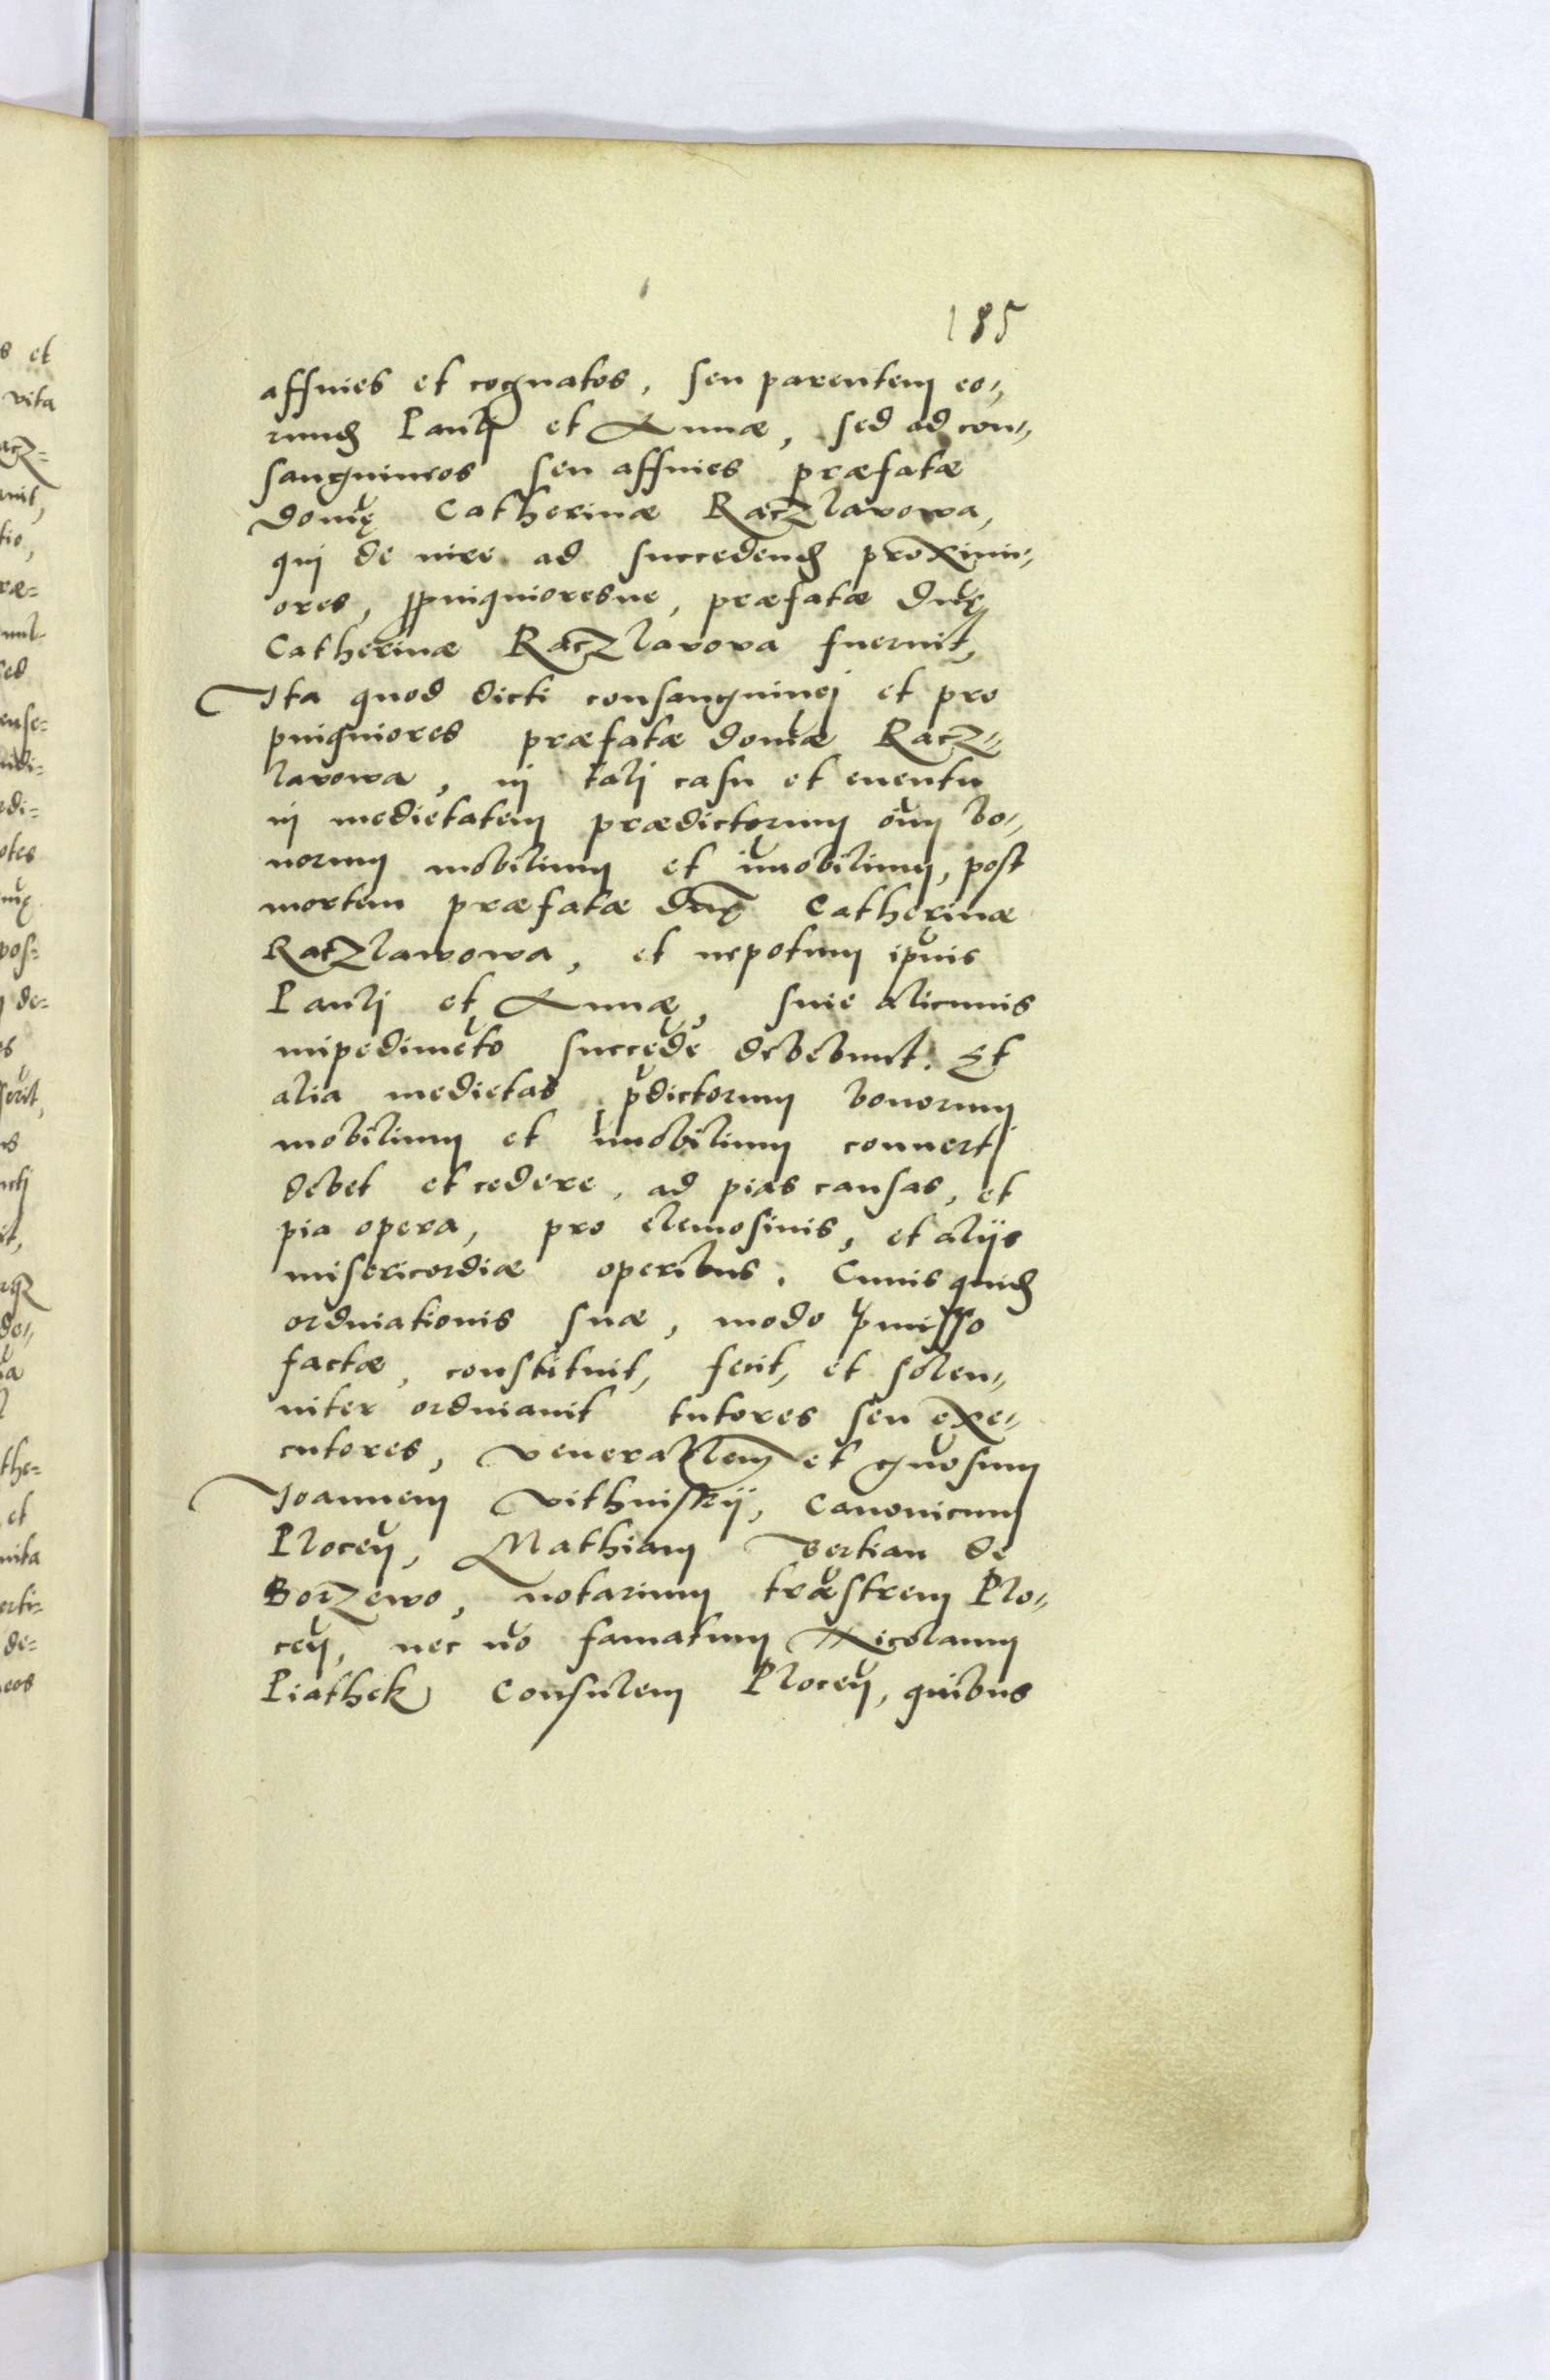 185
affines et cognatos, seu parentem eo„
rund Pauli et Annæ, sed ad con„
sanguineos seu affines præfatæ
domę Catherinæ Raczlavowa,
qui de iure ad succedend proximi„
ores, ppinquioresue, præfatæ dnę
Catherinæ Raczlavova fuerint,
Ita quod dicti consanguinei et pro
pinquiores præfatæ domæ Racz„
lavowa, in tali casu et euentu
in medietatem prædictorum oium bo„
norum mobilium et imobilium, post
mortem præfatæ dnę Catherinæ
Raczlawowa, et nepotum ipuis
Pauli et Annæ, sine alicuius
impedimeto succede debebunt. Et
alia medietas pdictorum bonorum
mobilium et imobilium conuerti
debet et cedere, ad pias causas, et
pia opera, pro elemosinis, et alijs
misericordiæ operibus. Cuius quid
ordinationis suæ, modo pmisso
factæ, constituit, fecit, et solen„
niter ordinauit tutores seu exe„
cutores, venerabilem et gnosum
Joannem Vithuiskij, Canonicum
Plocen, Mathiam Bertian de
Borzewo, notarium træstrem Plo„
cen, nec no famatum Nicolaum
Piathek Consulem Plocen, quibus